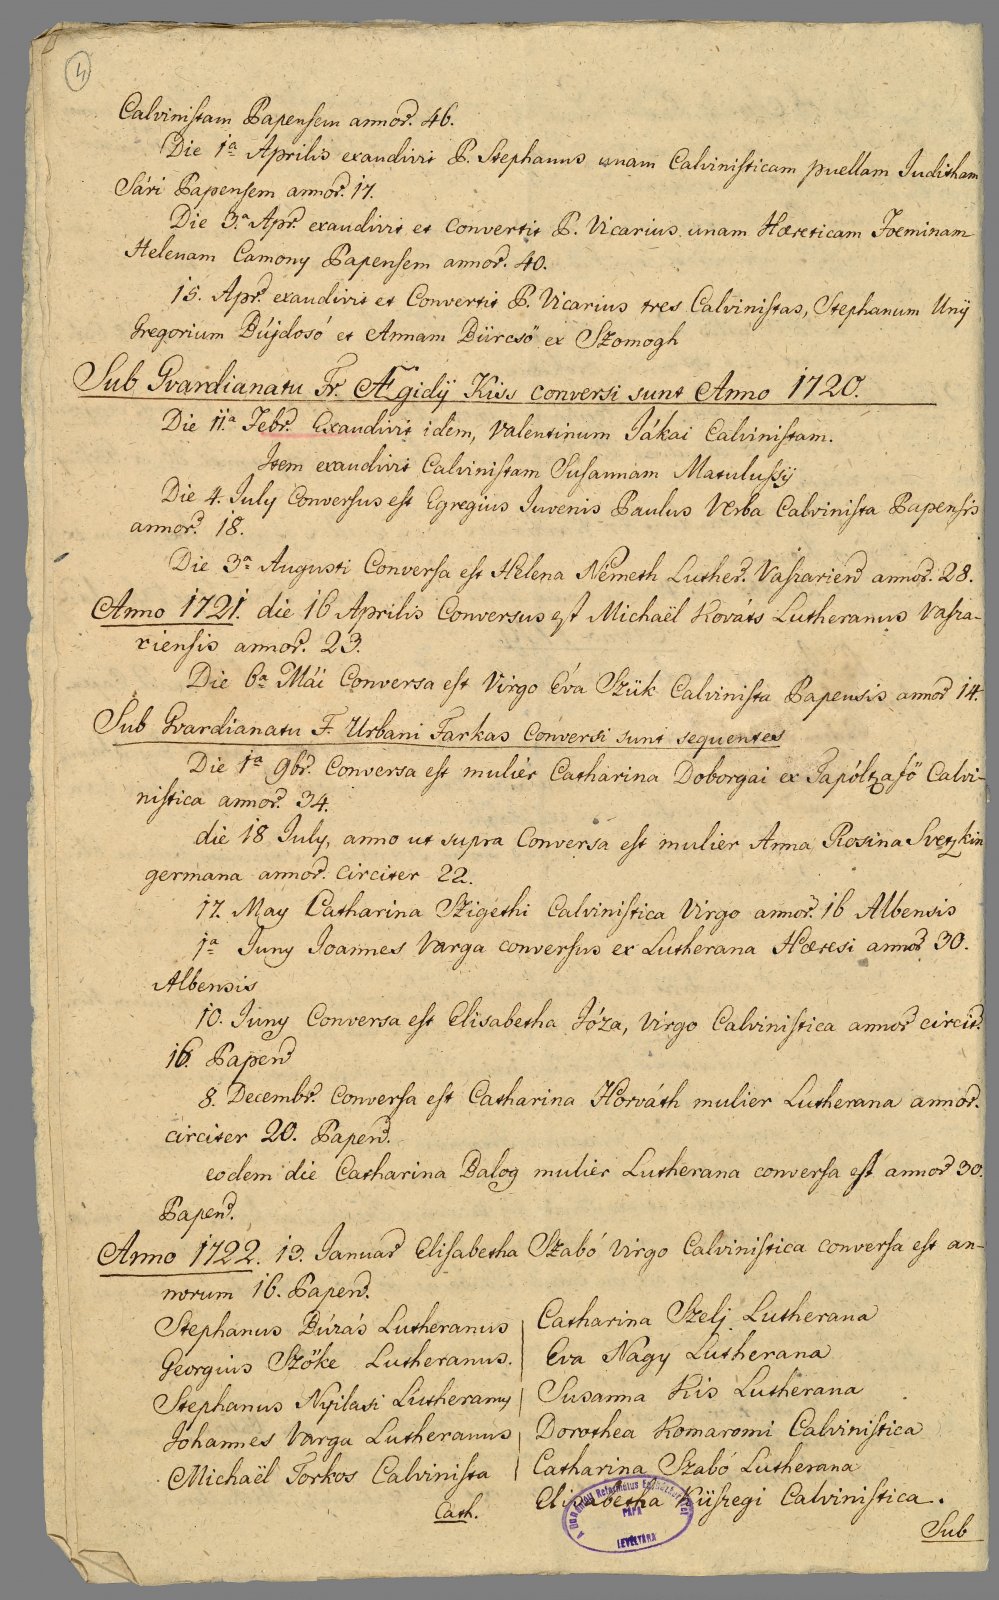 4
Calvinistam Papensem annor. 46.
Die 1a Aprilis exaudivit P. Stephanus unam Calvinisticam puellam Juditham
Sári Papensem annor. 17.
Die 3.a Apr. exaudivit et convertit P. Vicarius unam Hæreticam Foeminam
Helenam Camony Papensem annor. 40.
15. Apr. exaudivit et Convertit P. Vicarius tres Calvinistas, Stephanum Unÿ
Gregorium Bújdosó et Annam Bürcsö ex Szomogh
Sub Gvardianatu Fr. Ægidÿ Kiss conversi sunt Anno 1720.
Die 11.a Febr. Exaudivit idem, Valentinum Jákai Calvinistam.
Item exaudivit Calvinistam Susannam Matulussÿ
Die 4. July Conversus est Egregius Iuvenis Paulus Verba Calvinista Papensis
annor. 18.
Die 3a Augusti Conversa est Helena Németh Luther. Vaszarien annor. 28.
Anno 1721. die 16 Aprilis Conversus est Michaël Kováts Lutheranus Vasza-
riensis annor. 23.
Die 6a Máii Conversa est Virgo Éva Szük Calvinista Papensis annor 14.
Sub Gvardianatu F. Urbani Farkas Conversi sunt sequentes
Die 1a 9br. Conversa est muliér Catharina Doborgai ex Tapóltzafö Calvi-
nistica annor. 34.
die 18 July, anno ut supra Conversa est mulier Anna Rosina Svetzkin
germana annor. circiter 22.
17. May Catharina Szigethi Calvinistica Virgo annor. 16 Albensis
1a Juny Joannes Varga conversus ex Lutherana Hæresi annor 30.
Albensis
10. Juny Conversa est Elisabetha Józa, Virgo Calvinistica annor circit.
16. Papen
8. Decembr. Conversa est Catharina Horváth mulier Lutherana annor.
circiter 20. Papen.
eodem die Catharina Balog mulier Lutherana conversa est annor 30.
Papen.
Anno 1722. 13. Januar Elisabetha Szabó Virgo Calvinistica conversa est an-
norum 16. Papen.
Stephanus Búzás Lutheranus
Georgius Szöke Lutheranus.
Stephanus Nyilasi Lutheranus
Johannes Varga Lutheranus
Michaël Torkos Calvinista
Cath.
Catharina Szelj Lutherana
Eva Nagy Lutherana
Susanna Kis Lutherana
Dorothea Komaromi Calvinistica
Catharina Szabó Lutherana
Elisabetha Küszegi Calvinistica.
Sub
A Dunántúli Református Egyházkerület
PÁPA
LEVÉLTÁRA